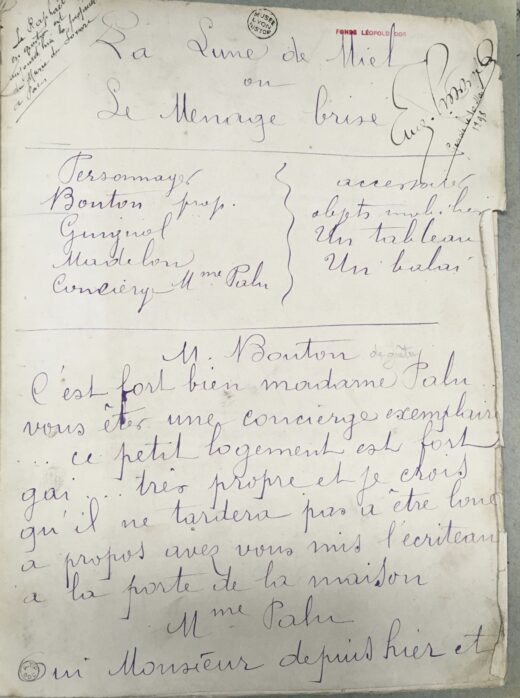 Le Raphaël
en question est
du Musée du Louvre
a Paris
MUSEE
LYON
HISTOR
FONDS LÉOPOLD DOR
La Lune de Miel
ou
Le Menage brisé
Personnages
Bouton prop.
Guignol
Madelon
Concièrge Mme Palu
accessoires
objets mobiliers
Un tableau
Un balai
M. Bouton
C'est fort bien madame Palu..
vous êtes une concièrge exemplaire
... ce petit logement est fort
gai... très propre et je crois
qu'il ne tardera pas a être loué
a propos avez vous mis l'écriteau
a la porte de la maison
Mme Palu
Oui Monsieur depuis hier et